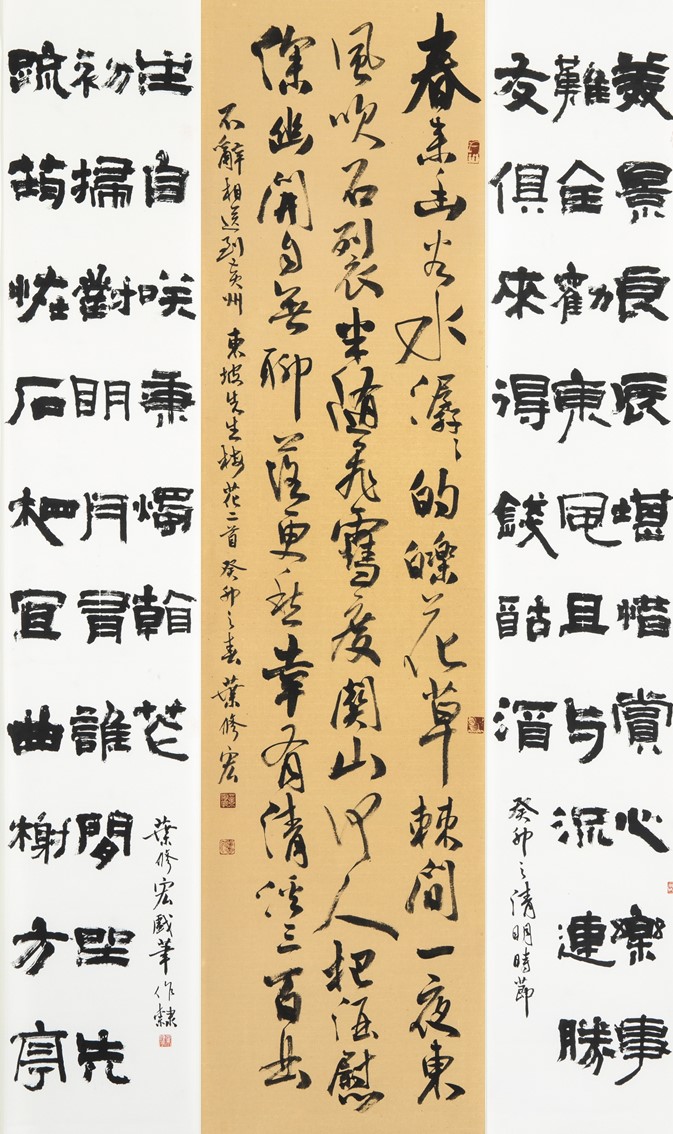 美景良辰堪惜賞心樂事
難全勸東風且与流連勝
友俱來得錢酤酒
癸卯之清明時節
春來幽谷水潺々的皪花草棘間一夜東
風吹石裂半隨飛雪度關山何人把酒慰
深幽開自無聊落更愁幸有清溪三百曲
不辭相送到黃州 東坡先生梅花二首 癸卯之春 葉修宏
疏筠怪石相宜曲榭方亭
初掃對明月誰閑坐先
生自咲秉燭看花
葉修宏戲筆作隸